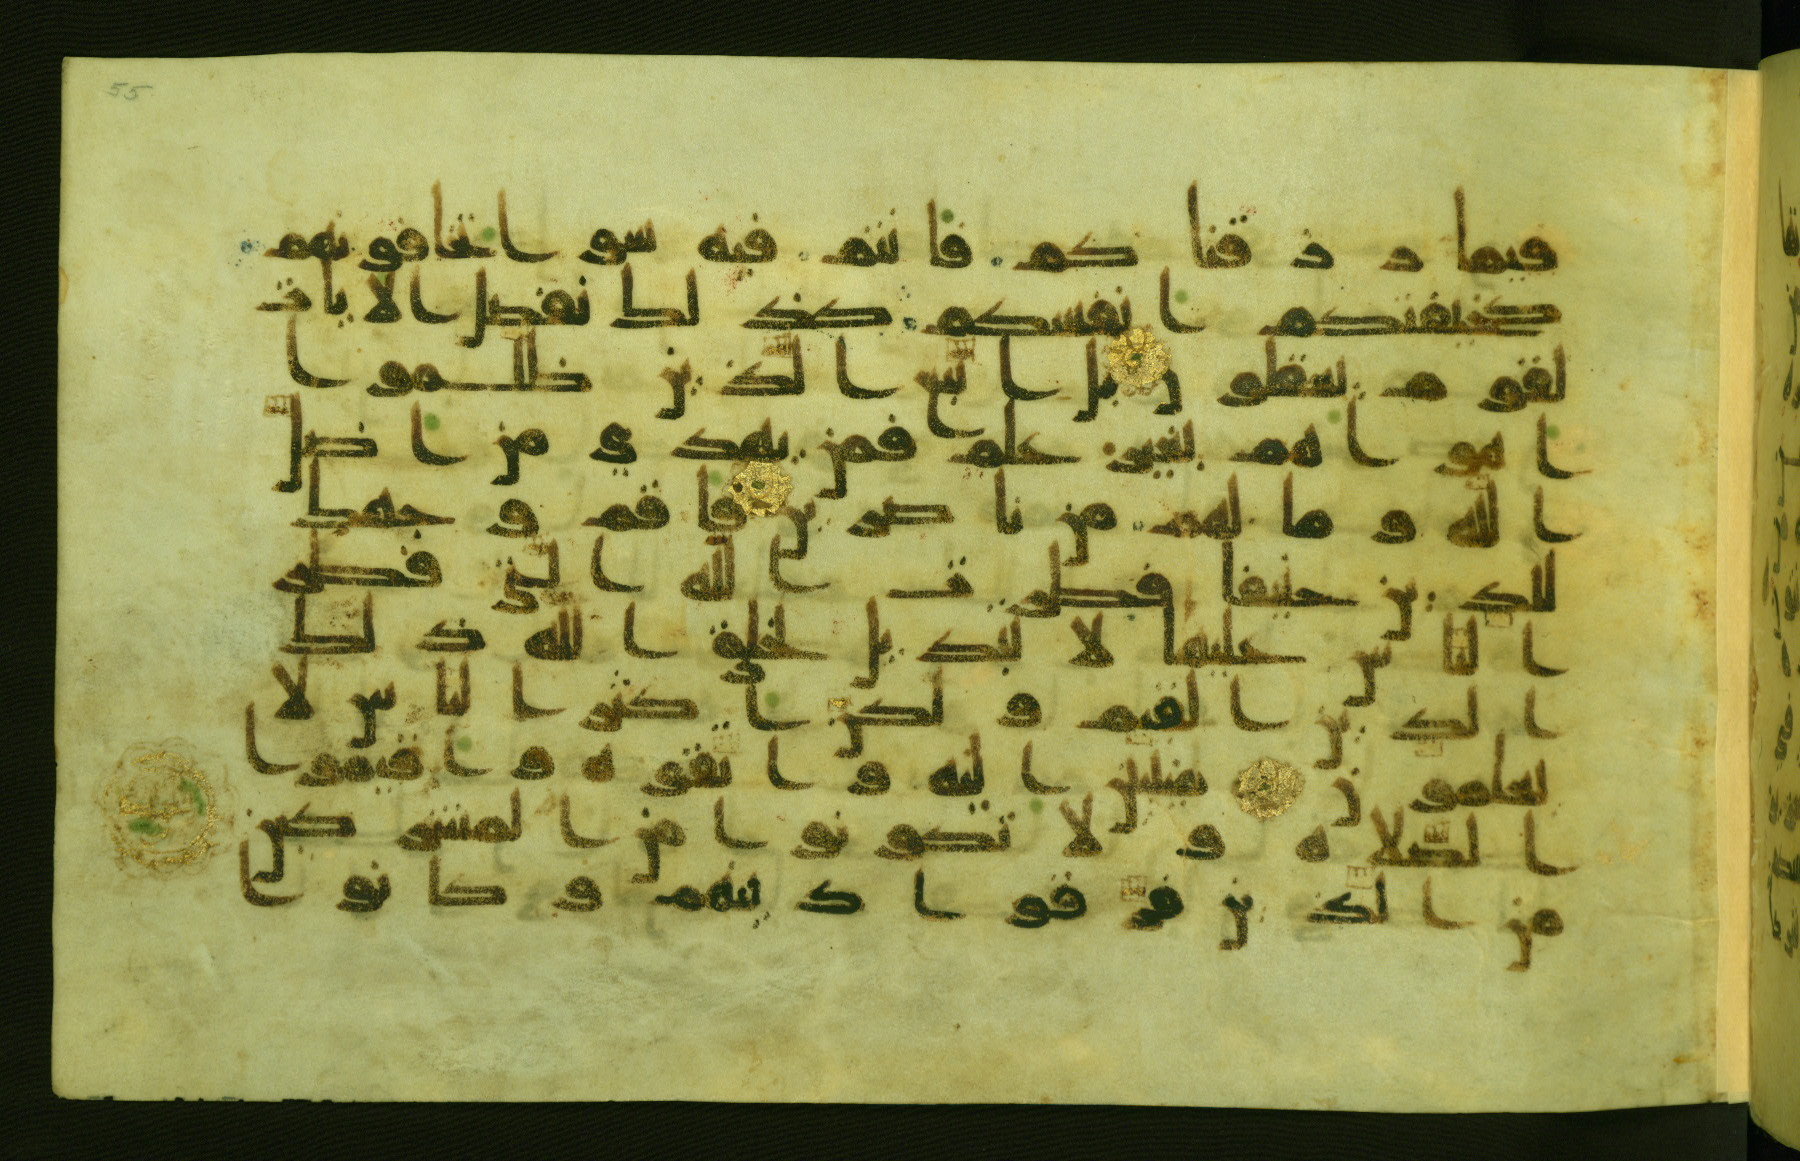 55
فيما رزقناكم فانتم فيه سوا تخافونهم
كخيفتكم انفسكم كذلك نفصل الايات
لقوم يعقلون بل اتبع الذين ظلموا
اهواهم بغير علم فمن يهدي من اضل
الله وما لهم من ناصرين فاقم وجهك
للدين حنيفا فطرت الله التي فطر
الناس عليها لا تبديل لخلق الله ذلك
الدين القيم ولكن اكثر الناس لا
يعلمون منيبين اليه واتقوه واقيموا
الصلاه ولا تكونوا من المشركين
من الذين فرقوا دينهم وكانوا